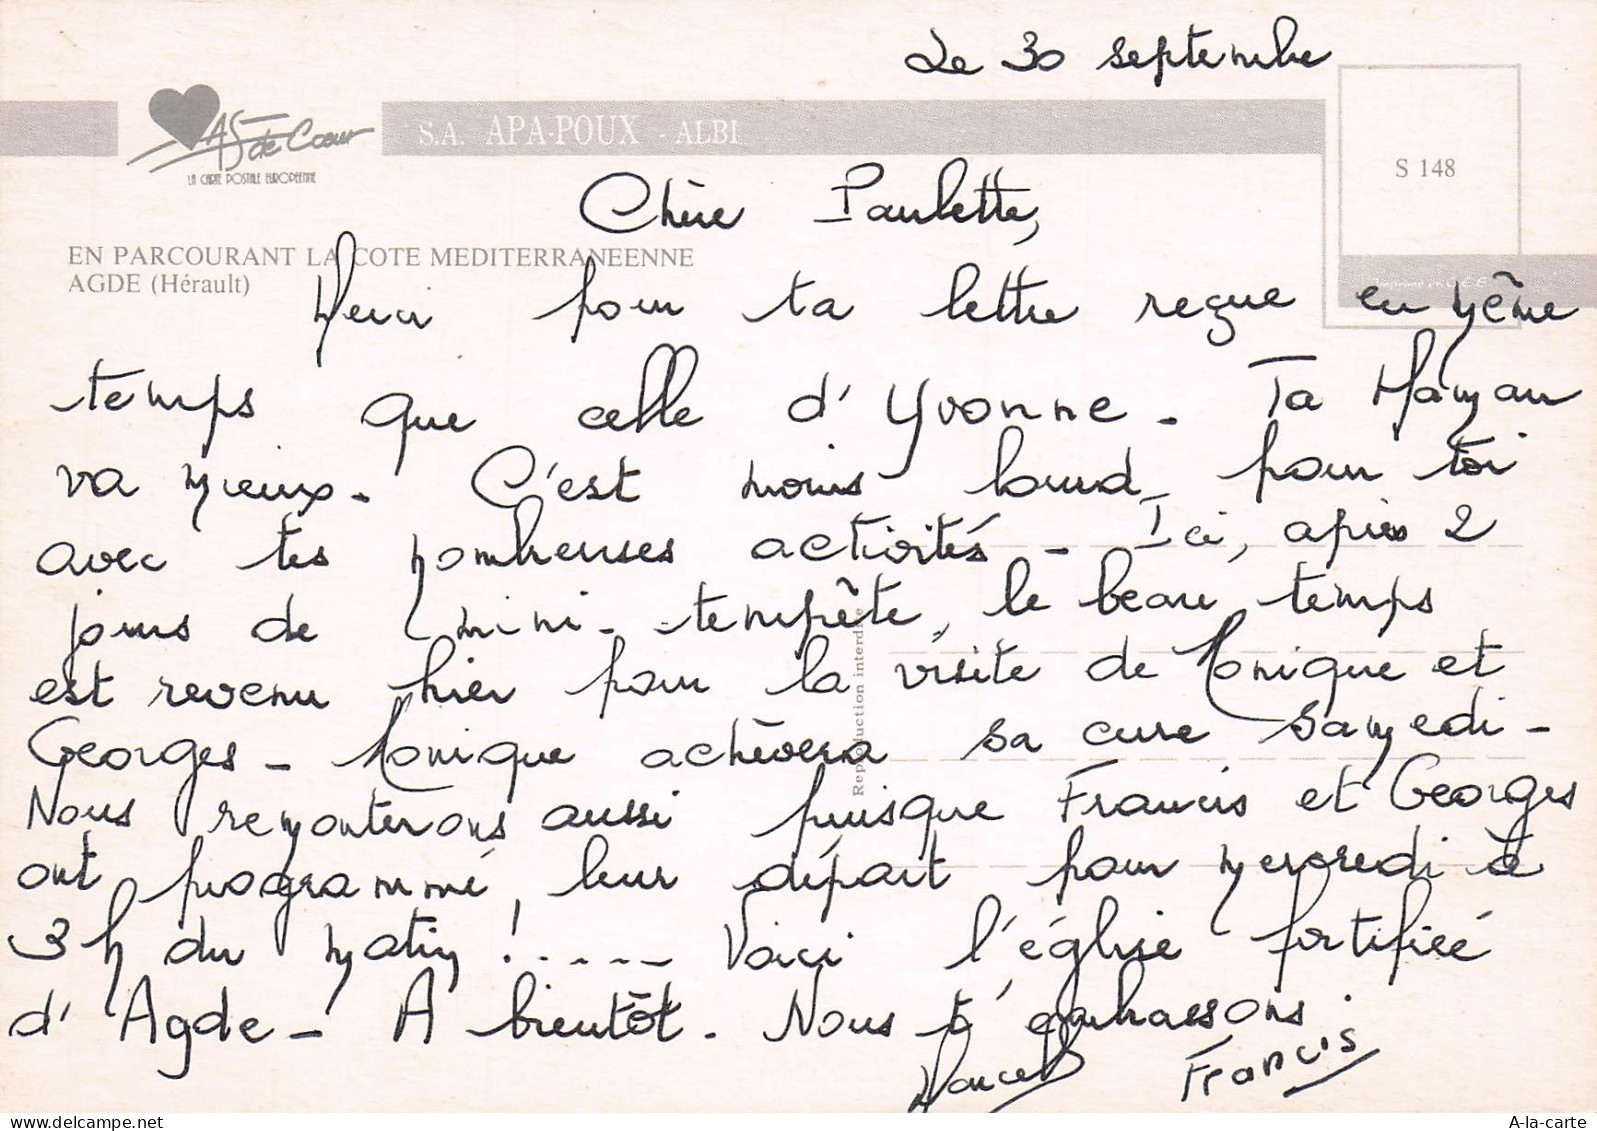 Le 30 septembre
As de Cœur
LA CARTE POSTALE EUROPEENNE
S.A. APA-POUX - ALBI
S 148
Chère Paulette,
EN PARCOURANT LA COTE MEDITERRANEENNE
AGDE (Hérault)
Imprimé en C.E.E
Merci pour ta lettre reçue en même
temps que celle d'Yvonne - Ta Maman
va mieux - C'est moins lourd pour toi
avec tes nombreuses activités - Ici, après 2
jours de mini-tempête, le beau temps
est revenu hier pour la visite de Monique et
Georges - Monique achèvera sa cure samedi -
Nous remonterons aussi puisque Francis et Georges
ont programmé leur départ pour mercredi à
3h du matin !..... Voici l'église fortifiée
d'Agde - A bientôt. Nous t'embrassons.
Francis
Reproduction interdite
A-la-carte